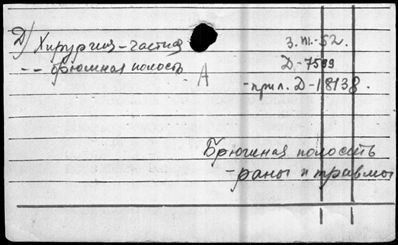 Д) Хирургия-частная
-- брюшная полость
А
3.III-52.
Д-7599
-прил. Д-18138.
Брюшная полость
-раны и травмы